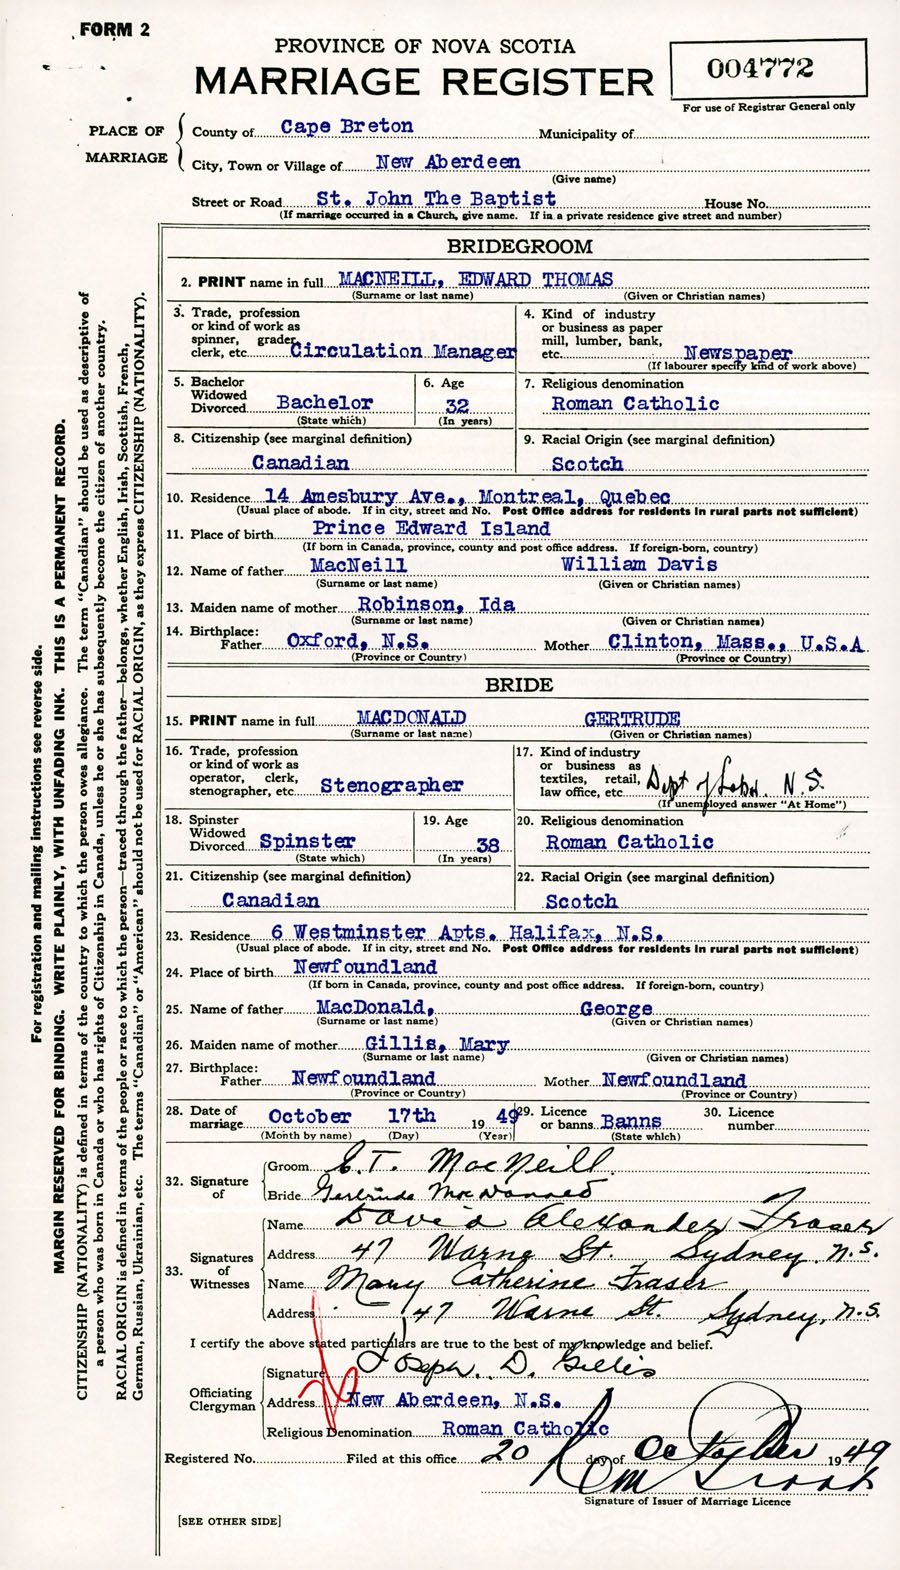 FORM 2
PROVINCE OF NOVA SCOTIA
MARRIAGE REGISTER
004772
For use of Registrar General only
PLACE OF MARRIAGE
County of Cape Breton Municipality of
City, Town or Village of New Aberdeen
(Give name)
Street or Road St. John The Baptist House No.
(If marriage occurred in a Church, give name. If in a private residence give street and number)
BRIDEGROOM
2. PRINT name in full MACNEILL, EDWARD THOMAS
(Surname or last name) (Given or Christian names)
3. Trade, profession
or kind of work as
spinner, grader,
clerk, etc. Circulation Manager
4. Kind of industry
or business as paper
mill, lumber, bank,
etc. Newspaper
(If labourer specify kind of work above)
5. Bachelor
Widowed
Divorced Bachelor
(State which)
6. Age
32
(In years)
7. Religious denomination
Roman Catholic
8. Citizenship (see marginal definition)
Canadian
9. Racial Origin (see marginal definition)
Scotch
10. Residence 14 Amesbury Ave., Montreal, Quebec
(Usual place of abode. If in city, street and No. Post Office address for residents in rural parts not sufficient)
11. Place of birth Prince Edward Island
(If born in Canada, province, county and post office address. If foreign-born, country)
12. Name of father MacNeill William Davis
(Surname or last name) (Given or Christian names)
13. Maiden name of mother Robinson, Ida
(Surname or last name) (Given or Christian names)
14. Birthplace:
Father Oxford, N.S. Mother Clinton, Mass., U.S.A
(Province or Country) (Province or Country)
BRIDE
15. PRINT name in full MACDONALD GERTRUDE
(Surname or last name) (Given or Christian names)
16. Trade, profession
or kind of work as
operator, clerk,
stenographer, etc. Stenographer
17. Kind of industry
or business as
textiles, retail,
law office, etc. Dept of Labor. N.S.
(If unemployed answer "At Home")
18. Spinster
Widowed
Divorced Spinster
(State which)
19. Age
38
(In years)
20. Religious denomination
Roman Catholic
21. Citizenship (see marginal definition)
Canadian
22. Racial Origin (see marginal definition)
Scotch
23. Residence 6 Westminster Apts. Halifax, N.S.
(Usual place of abode. If in city, street and No. Post Office address for residents in rural parts not sufficient)
24. Place of birth Newfoundland
(If born in Canada, province, county and post office address. If foreign-born, country)
25. Name of father MacDonald, George
(Surname or last name) (Given or Christian names)
26. Maiden name of mother Gillis, Mary
(Surname or last name) (Given or Christian names)
27. Birthplace:
Father Newfoundland Mother Newfoundland
(Province or Country) (Province or Country)
28. Date of
marriage October 17th 1949
(Month by name) (Day) (Year)
29. Licence
or banns Banns
(State which)
30. Licence
number
32. Signature of
Groom E. T. MacNeill
Bride Gertrude MacDonald
33. Signatures of Witnesses
Name David Alexander Fraser
Address 47 Warne St. Sydney, N.S.
Name Mary Catherine Fraser
Address 47 Warne St. Sydney, N.S.
I certify the above stated particulars are true to the best of my knowledge and belief.
Officiating Clergyman
Signature Joseph D. Gillis
Address New Aberdeen, N.S.
Religious Denomination Roman Catholic
Registered No. Filed at this office 20 day of October 1949
Signature of Issuer of Marriage Licence
[SEE OTHER SIDE]
For registration and mailing instructions see reverse side.
MARGIN RESERVED FOR BINDING. WRITE PLAINLY, WITH UNFADING INK. THIS IS A PERMANENT RECORD.
CITIZENSHIP (NATIONALITY) is defined in terms of the country to which the person owes allegiance. The term "Canadian" should be used as descriptive of
a person who was born in Canada or who has rights of Citizenship in Canada, unless he or she has subsequently become the citizen of another country.
RACIAL ORIGIN is defined in terms of the people or race to which the person—traced through the father—belongs, whether English, Irish, Scottish, French,
German, Russian, Ukrainian, etc. The terms "Canadian" or "American" should not be used for RACIAL ORIGIN, as they express CITIZENSHIP (NATIONALITY).